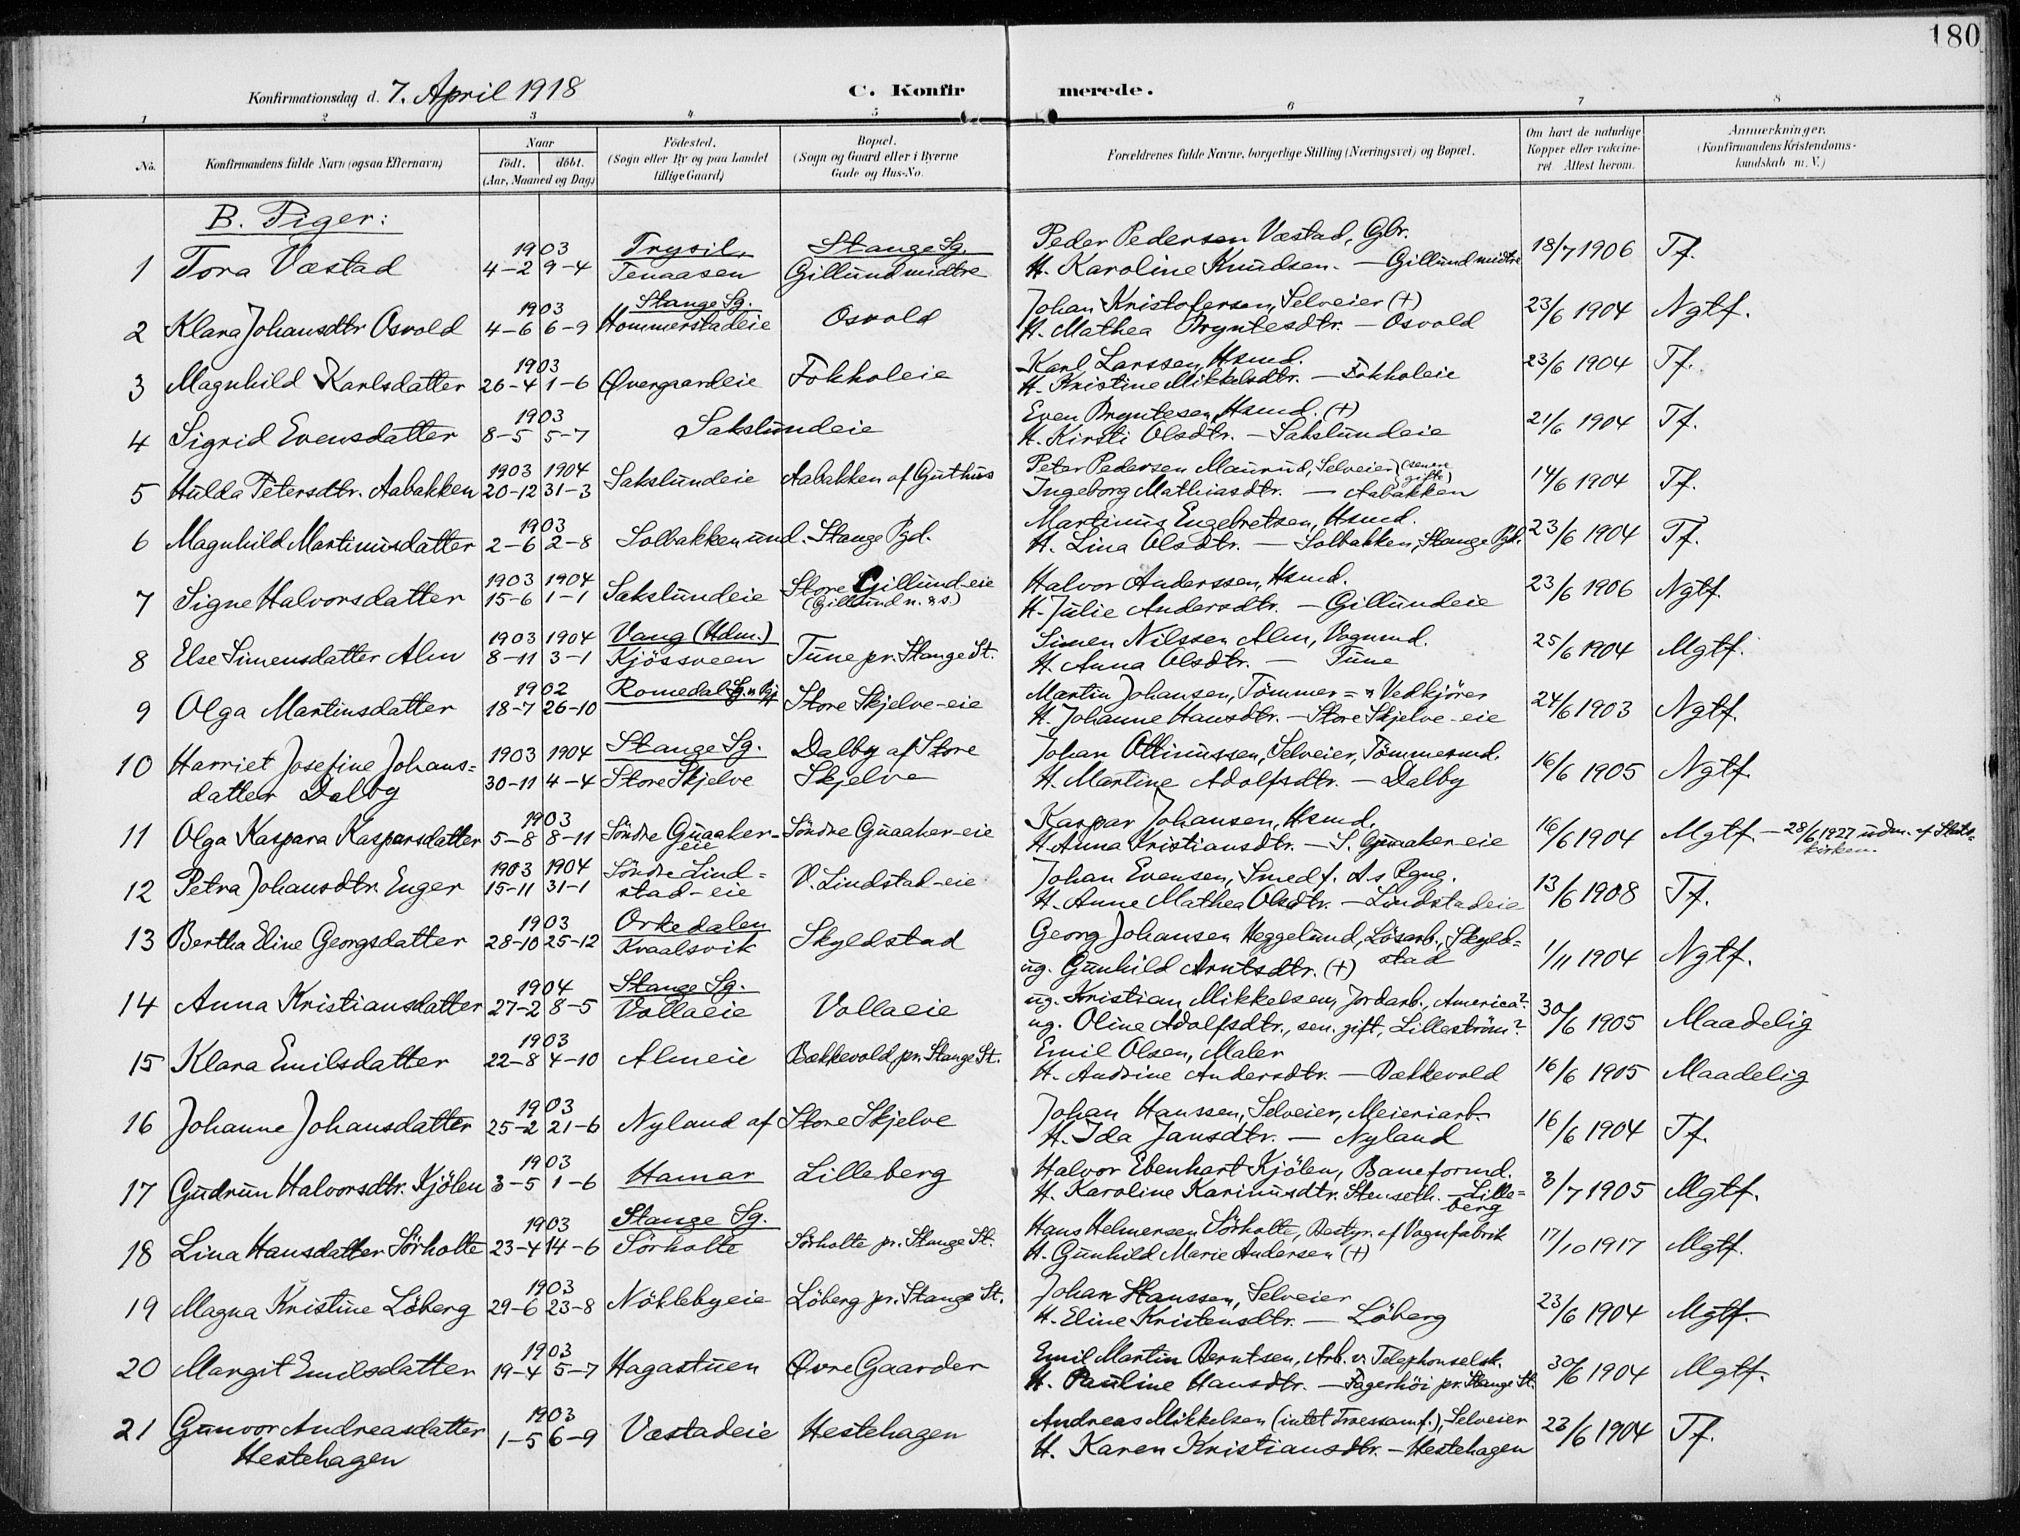 180
Konfirmationsdag d. 7. April 1918
C. Konfirmerede.
1 2 3 4 5 6 7 8
No.
Konfirmandens fulde Navn (ogsaa Efternavn)
Naar
födt. döbt.
(Aar, Maaned og Dag)
Födested.
(Sogn eller By og paa Landet
tillige Gaard)
Bopæl.
(Sogn og Gaard eller i Byerne
Gade og Hus-No.
Forældrenes fulde Navne, borgerlige Stilling (Næringsvei) og Bopæl.
Om havt de naturlige
Kopper eller vakcine-
ret. Attest herom.
Anmerkninger.
(Konfirmandens Kristendoms-
kundskab m. V.)
B. Piger:
1903 Trysil, Stange Sg. Peder Pedersen Væstad, Gbr.
1 Tora Væstad 4-2 9-4 Tenaasen Gillund midtre H. Karoline Knudsen. — Gillund midtre 18/7 1906 Tf.
1903 Stange Sg. Johan Kristofersen, Selveier (+)
2 Klara Johansdtr Osvold 4-6 6-9 Hommerstadeie Osvold H. Mathea Bryntesdtr. — Osvold 23/6 1904 Ngtf.
1903 Karl Larssen, Hsmd.
3 Magnhild Karlsdatter 26-4 1-6 Øvergaardeie Fokholeie H. Kristine Mikkelsdtr. — Fokholeie 23/6 1904 Tf.
1903 Even Bryntesen, Hsmd. (+)
4 Sigrid Evensdatter 8-5 5-7 Sakslundeie H. Kirsti Olsdtr. — Sakslundeie 21/6 1904 Tf.
1903 1904 Peter Pedersen Maurud, Selveier (senere gifte)
5 Hulda Petersdtr. Aabakken 20-12 31-3 Sakslundeie Aabakken af Guthus Ingeborg Mathiasdtr. — Aabakken 14/6 1904 Tf.
1903 Martinus Engebretsen, Hsmd.
6 Magnhild Martinusdatter 2-6 2-8 Solbakken und. Stange Pgd. H. Lina Olsdtr. — Solbakken, Stange Pgd. 23/6 1904 Tf.
1903 1904 Store Gillund-eie Halvor Anderssen, Hsmd.
7 Signe Halvorsdatter 15-6 1-1 Sakslundeie (Gillund n. & s.) H. Julie Andersdtr. — Gillundeie 23/6 1906 Ngtf.
1903 1904 Vang (Hdm.) Simen Nilssen Alm, Vognmd.
8 Else Simensdatter Alm 8-11 3-1 Kjössveen Tune pr. Stange St. H. Anna Olsdtr. — Tune 25/6 1904 Mgtf.
1902 Romedal Sg. Martin Johansen, Tömmer= & Vedkjörer
9 Olga Martinsdatter 18-7 26-10 Store Skjelve-eie H. Johanne Hansdtr. — Store Skjelve-eie 24/6 1903 Ngtf.
10 Harriet Josefine Johans= 1903 1904 Stange Sg. Dalby af Store Johan Ottinussen, Selveier, Tömmermd.
datter Dalby 30-11 4-4 Store Skjelve Skjelve H. Martine Adolfsdtr. — Dalby 16/6 1905 Ngtf.
1903 Kaspar Johansen, Hsmd.
11 Olga Kaspara Kasparsdatter 5-8 8-11 Söndre Guaaker-eie Söndre Guaaker-eie H. Anna Kristiansdtr. — S. Guaaker-eie 16/6 1904 Mgtf. — 28/6 1927 udm. af Stats=kirken.
1903 1904 Söndre Lind= Johan Evensen, Smed f.
12 Petra Johansdtr. Enger 15-11 31-1 stad-eie V. Lindstad-eie H. Anne Mathea Olsdtr. — Lindstadeie 13/6 1908 Tf.
1903 Orkedalen Georg Johansen Heggelund, Lösarb., Skyld=stad
13 Bertha Eline Georgsdatter 28-10 25-12 Kvaalsvik Skyldstad ug. Gunhild Arntsdtr. (+) 1/11 1904 Ngtf.
1904 Stange Sg. ug. Kristian Mikkelsen, Jordarb., America?
14 Anna Kristiansdatter 27-2 8-5 Vollaeie Vollaeie ug. Oline Adolfsdtr., sen. gift, Lilleström? 30/6 1905 Maadelig
1903 Emil Olsen, Maler
15 Klara Emilsdatter 22-8 4-10 Almeie Bækkevold, pr. Stange St. H. Andrine Andersdtr. — Bækkevold 16/6 1905 Maadelig
1903 Johan Hanssen, Selveier, Meieriarb.
16 Johanne Johansdatter 25-2 21-6 Nyland af Store Skjelve H. Ida Jansdtr. — Nyland 16/6 1904 Tf.
1903 Halvor Ebenhart Kjölen, Baneformd.
17 Gudrun Halvorsdtr. Kjölen 3-5 1-6 Hamar Lilleberg H. Karoline Karinusdtr. Stenseth. — Lille=berg 3/7 1905 Mgtf.
1903 Stange Sg. Hans Helmersen Sörholte, Bestyr. af Vognfabrik
18 Lina Hansdatter Sörholte 23-4 14-6 Sörholte Sörholte pr. Stange St. H. Gunhild Marie Andersen (+) 17/10 1917 Mgtf.
1903 Johan Hanssen, Selveier
19 Magna Kristine Löberg 29-6 23-8 Nöklebyeie Löberg pr. Stange St. H. Eline Kristensdtr. — Löberg 23/6 1904 Mgtf.
1903 Emil Martin Berntsen, Arb. v. Telephonselsk.
20 Margit Emilsdatter 19-4 5-7 Hagastuen Øvre Gaarder H. Pauline Hansdtr. — Fagerhöi pr. Stange St. 30/6 1904 Mgtf.
1903 Andreas Mikkelsen (intet Troessamf.), Selveier
21 Gunvor Andreasdatter 1-5 6-9 Væstadeie Hestehagen H. Karen Kristiansdtr. — Hestehagen 23/6 1904 Tf.
Hestehagen